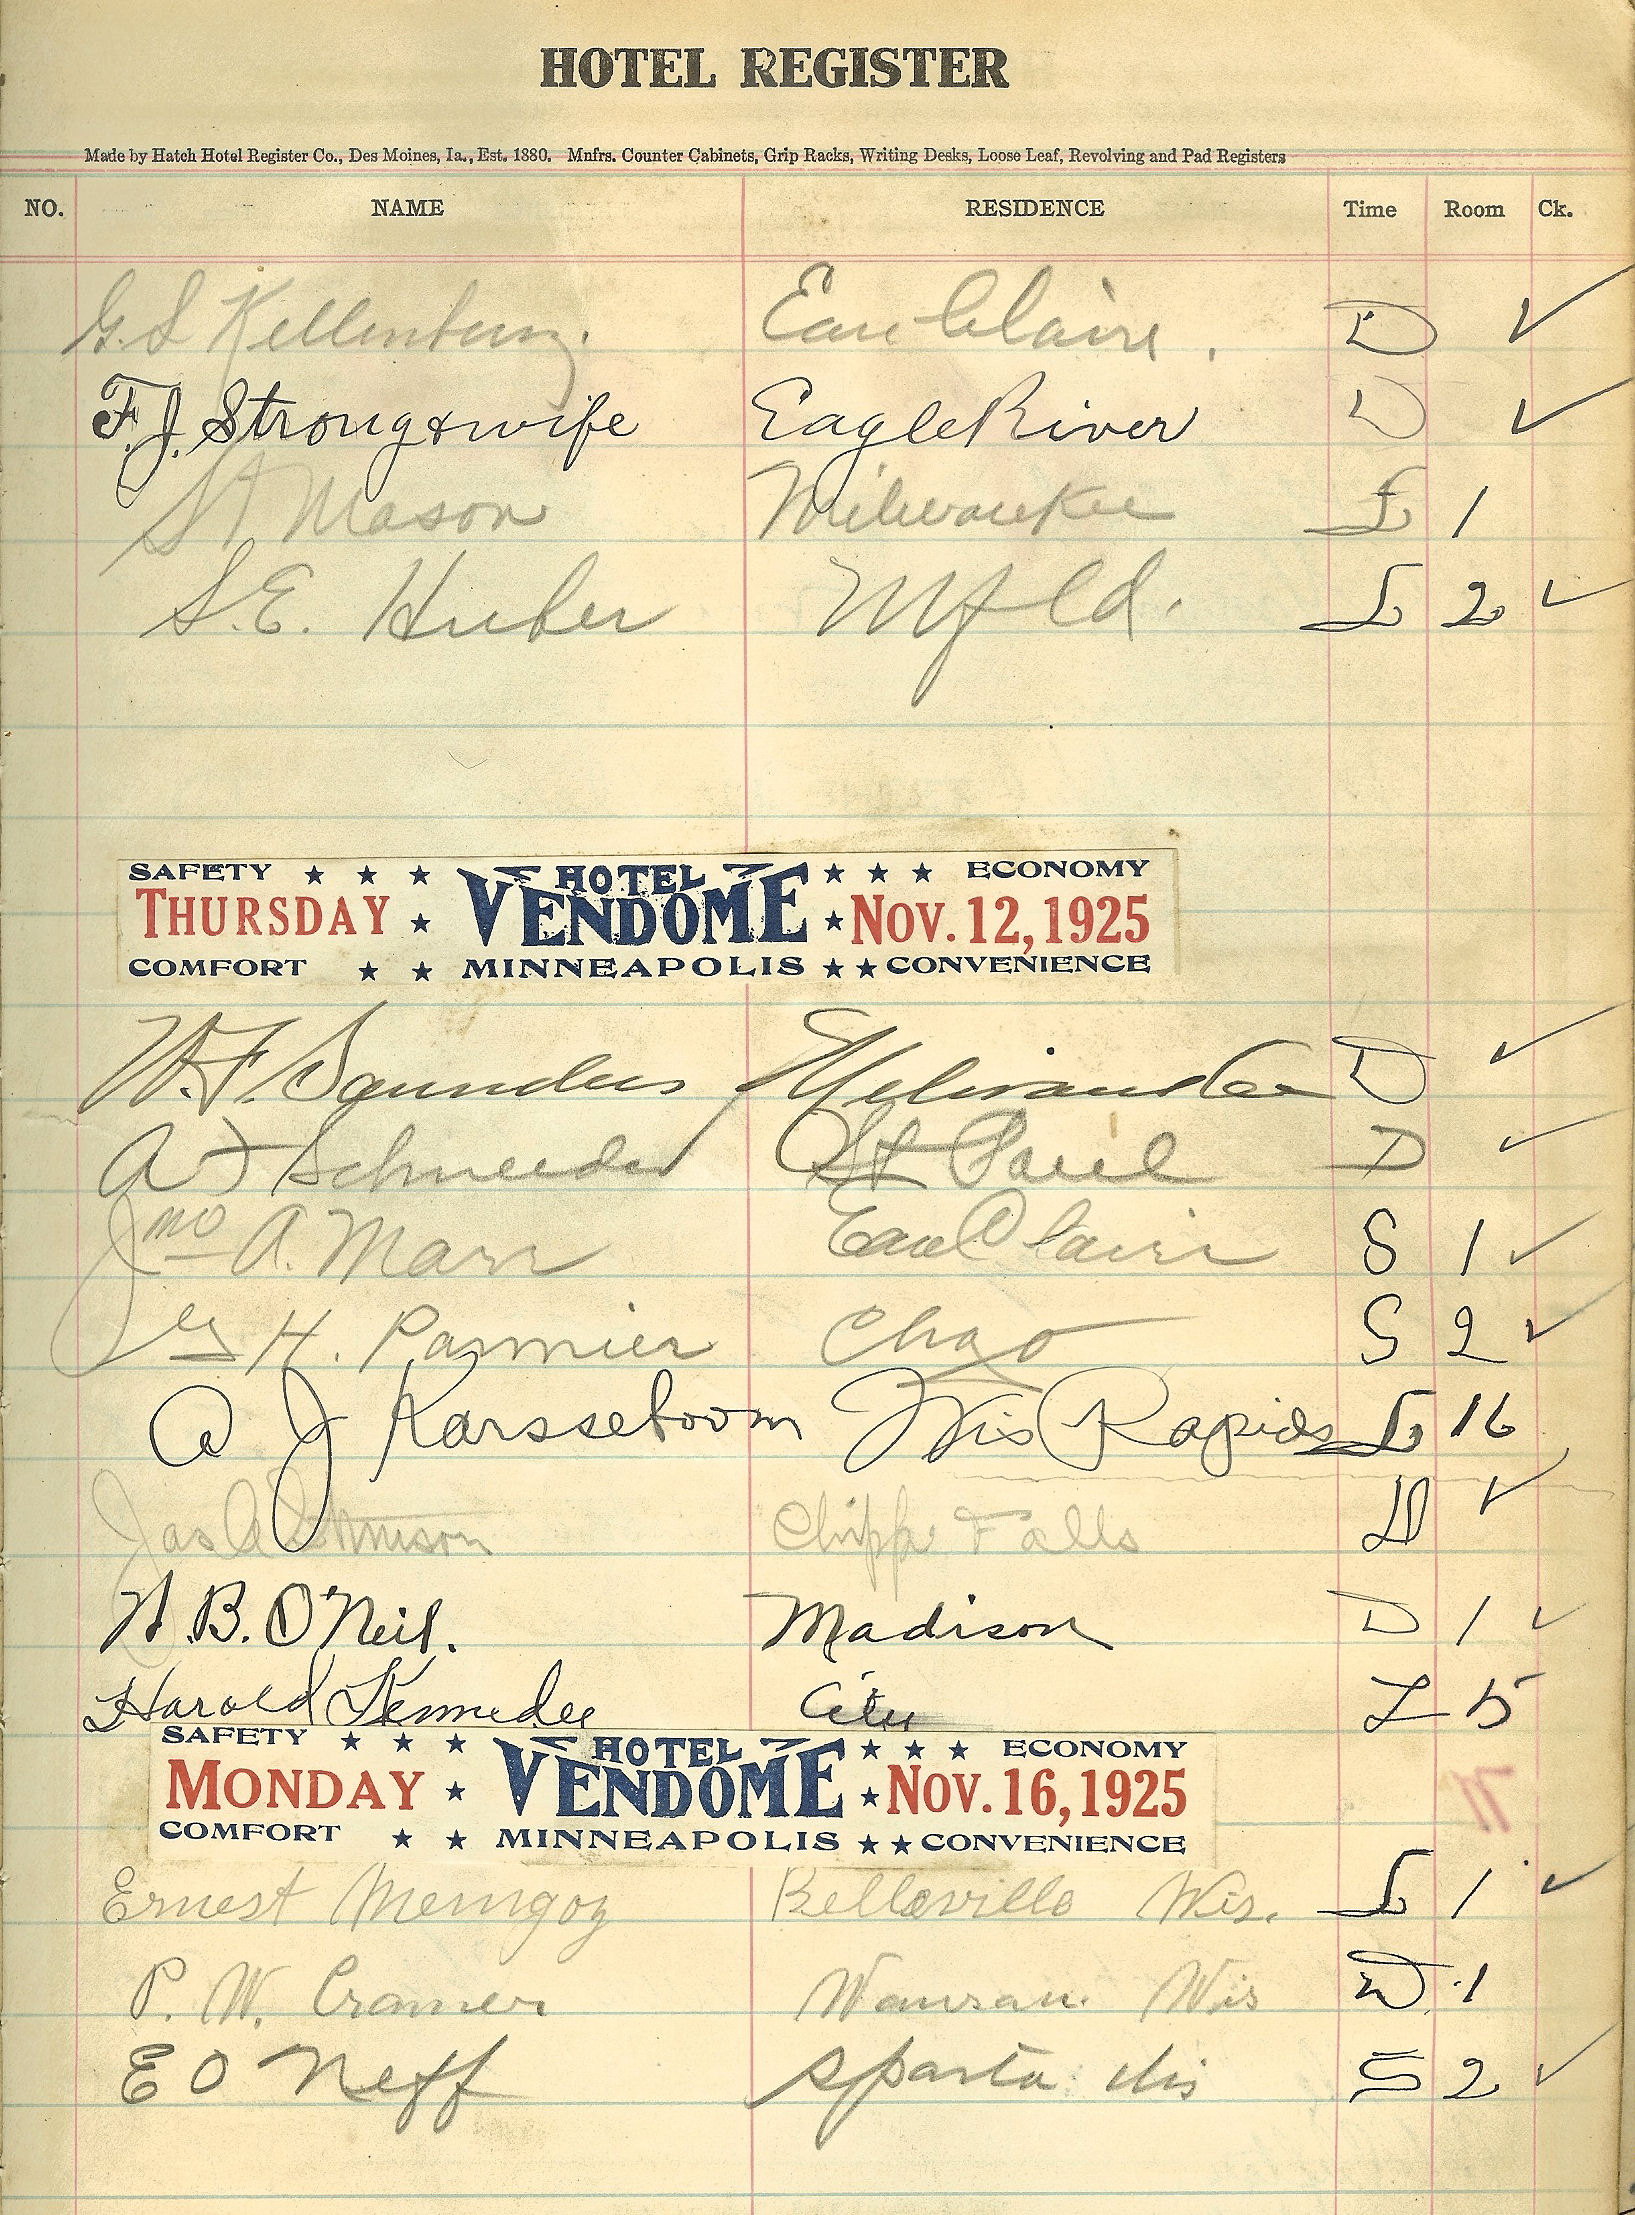 HOTEL REGISTER
Made by Hatch Hotel Register Co., Des Moines, Ia., Est. 1880. Mnfrs. Counter Cabinets, Grip Racks, Writing Desks, Loose Leaf, Revolving and Pad Registers
NO. NAME RESIDENCE Time Room Ck.
G. S Eau Claire. D ✓
F. J. Strong & wife Eagle River D ✓
Mason Milwaukee 1
S. E. Huber Mfld. 2 ✓
SAFETY ★ ★ ★ HOTEL ★ ★ ★ ECONOMY
THURSDAY ★ VENDOME ★ NOV. 12, 1925
COMFORT ★ ★ MINNEAPOLIS ★ ★ CONVENIENCE
W. F. Saunders Milwaukee D ✓
A J Schneider St Paul D ✓
Jno A. Marr Eau Claire S 1 ✓
H. Parmier Chgo S 2 ✓
A J Karsseboom Wis Rapids L 16
Jas A Chipp Falls D ✓
B. O'Neil. Madison D 1 ✓
Harold City L 15
SAFETY ★ ★ ★ HOTEL ★ ★ ★ ECONOMY
MONDAY ★ VENDOME ★ NOV. 16, 1925
COMFORT ★ ★ MINNEAPOLIS ★ ★ CONVENIENCE
Ernest Belleville Wis. L 1 ✓
P. W. Cramer Wausau. Wis D 1
E O Neff Sparta Wis S 2 ✓